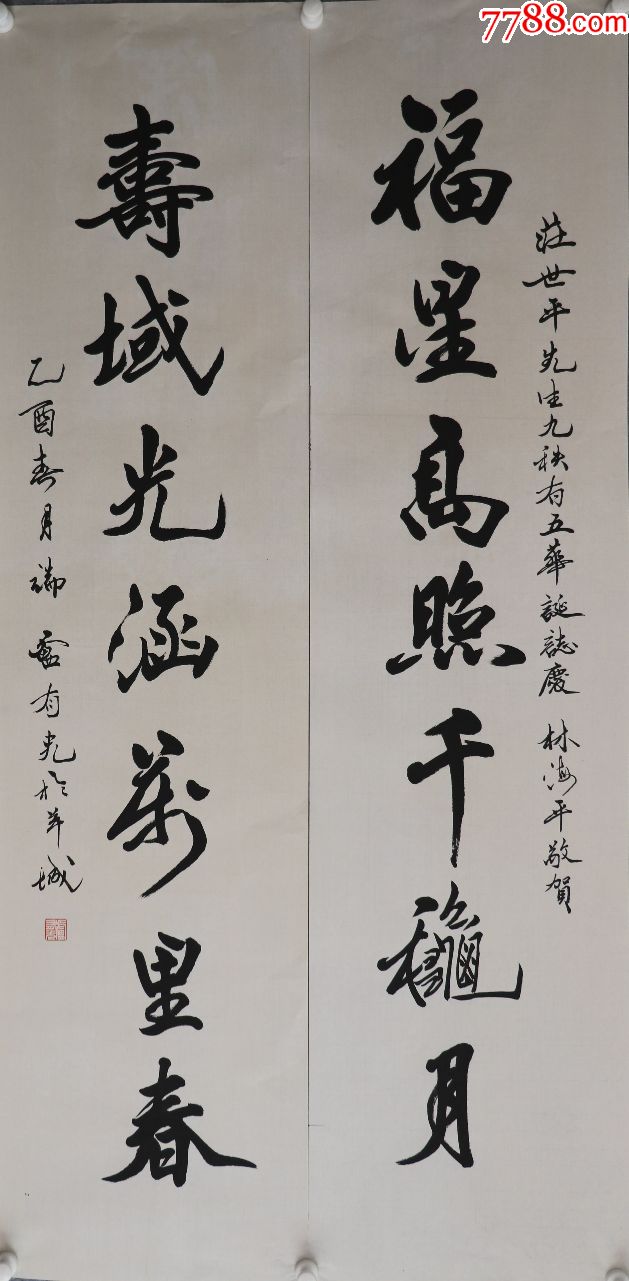 7788.com
莊世平先生九秩有五華誕誌慶 林海平敬賀
福星高照千龝月
壽域光涵萬里春
乙酉春月端 盧有光於羊城